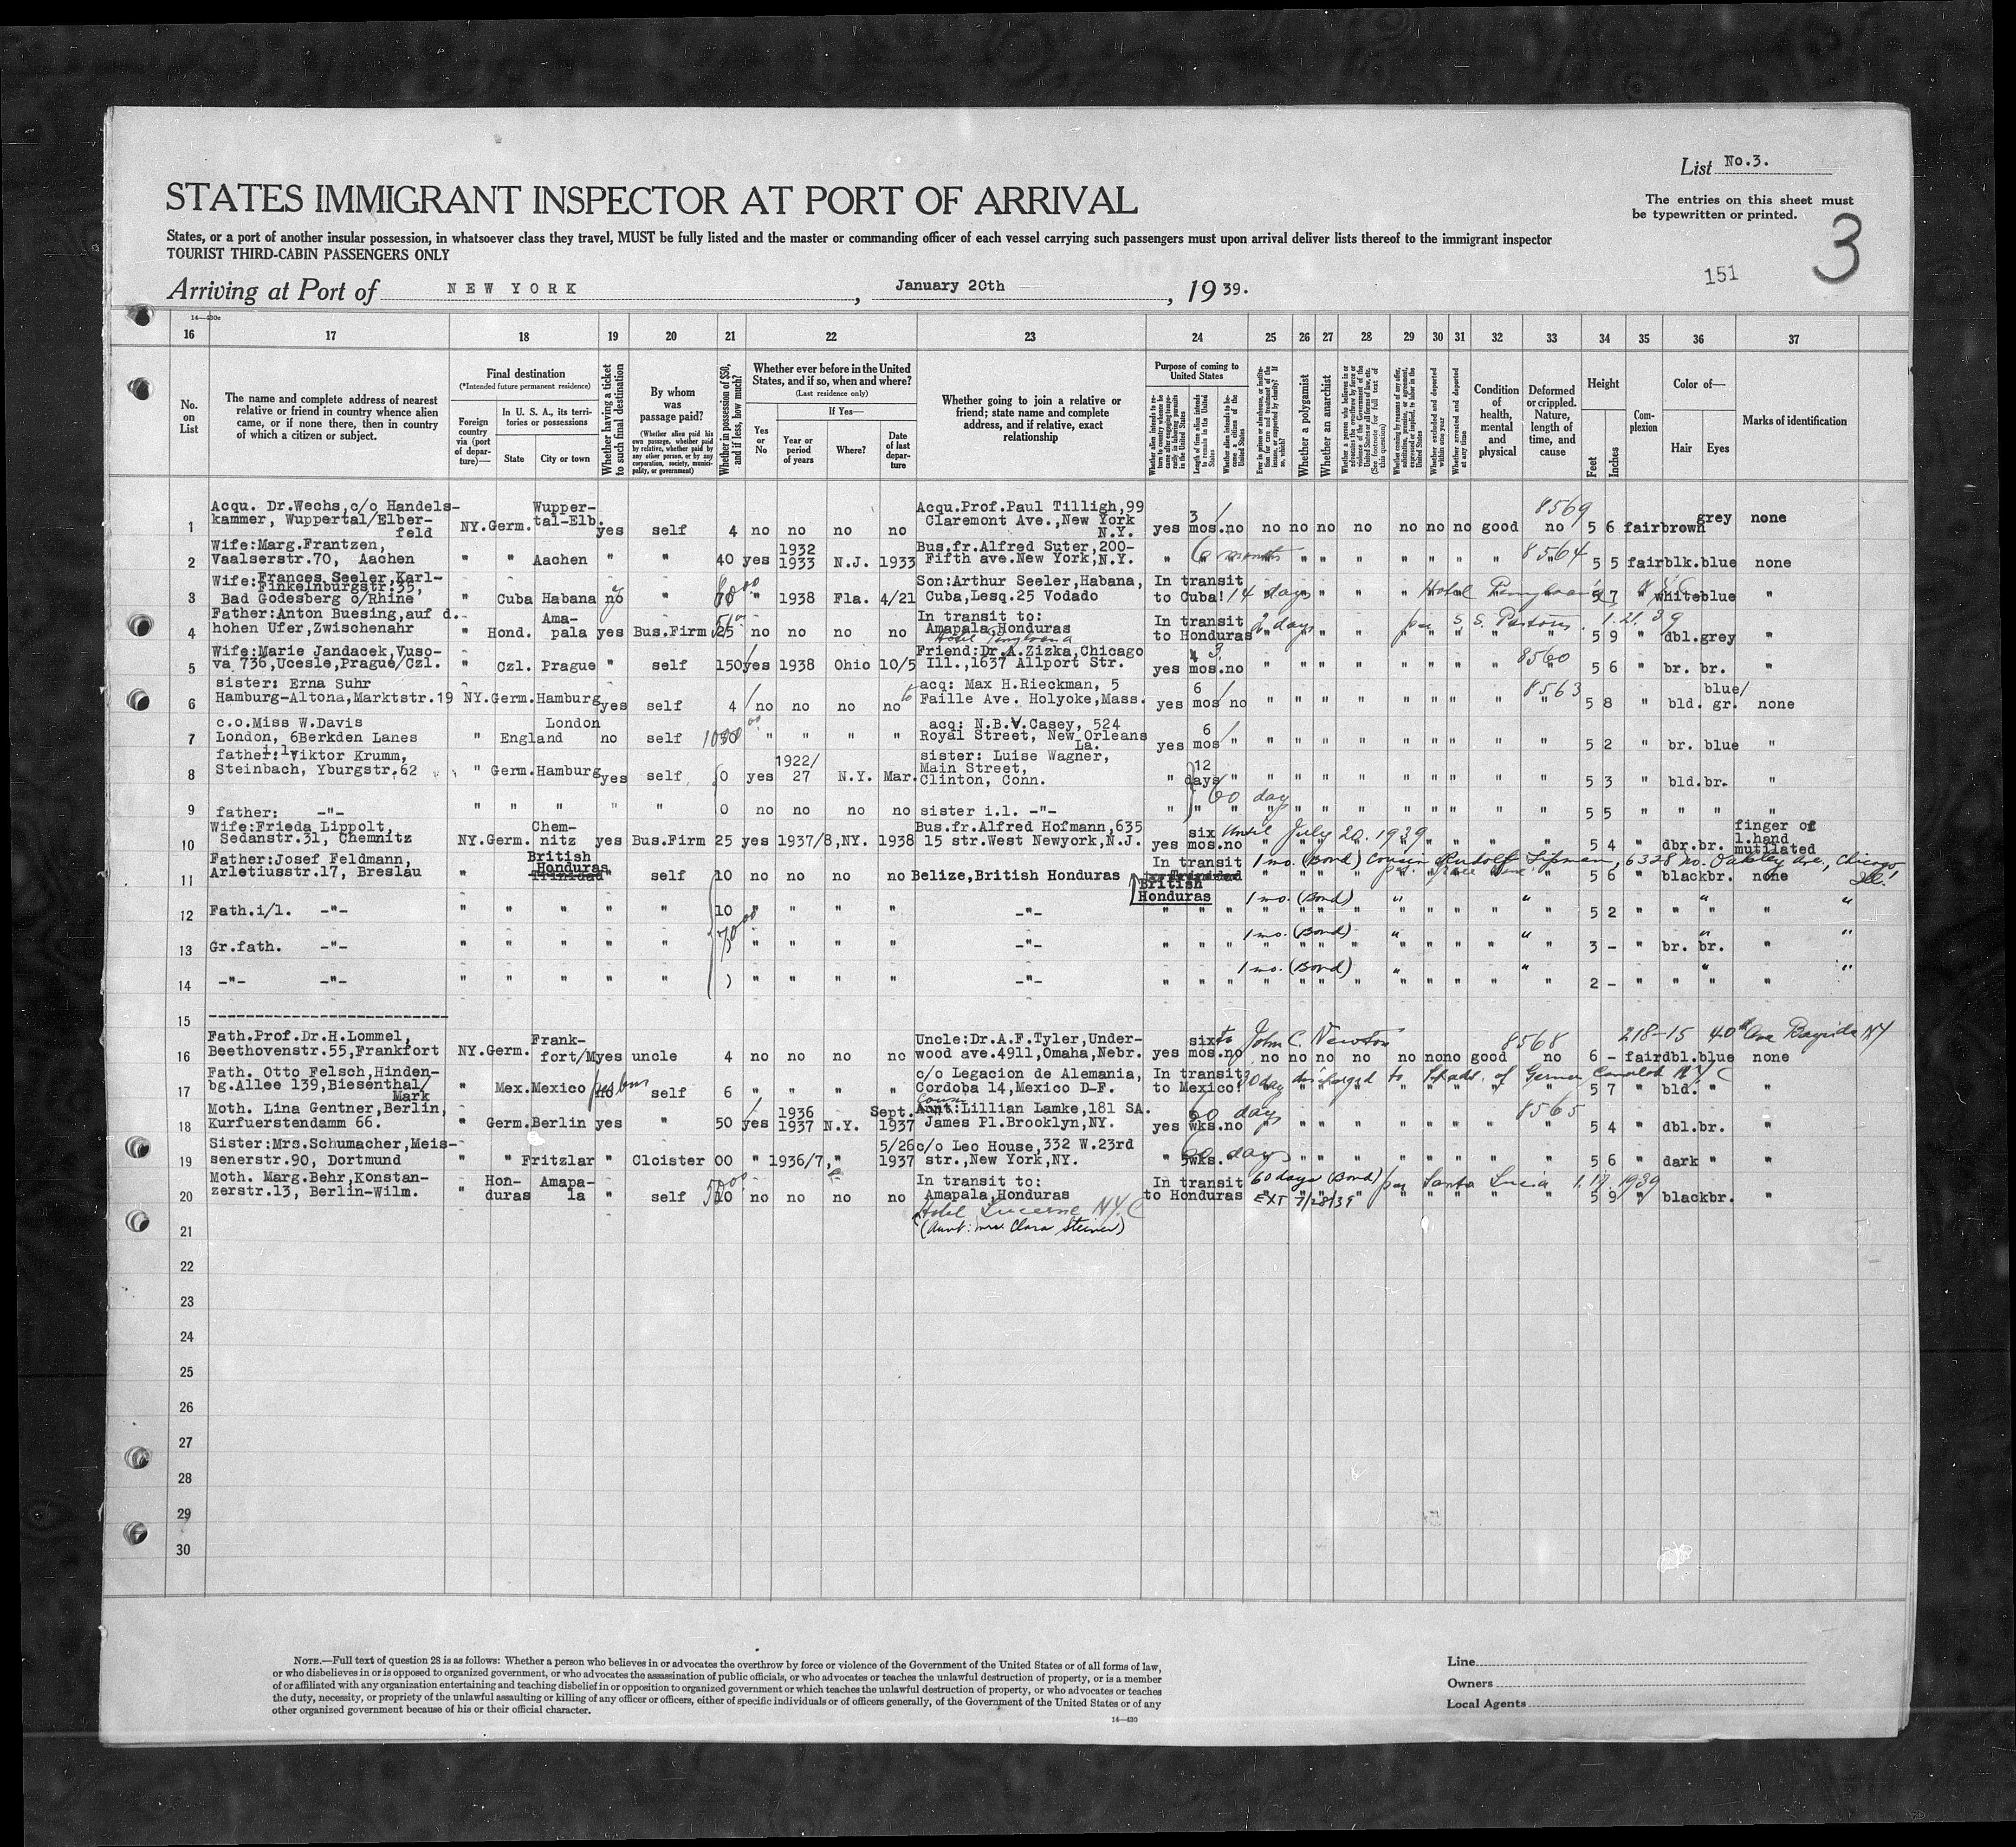 List No.3.
STATES IMMIGRANT INSPECTOR AT PORT OF ARRIVAL
The entries on this sheet must
be typewritten or printed.
3
States, or a port of another insular possession, in whatsoever class they travel, MUST be fully listed and the master or commanding officer of each vessel carrying such passengers must upon arrival deliver lists thereof to the immigrant inspector
TOURIST THIRD-CABIN PASSENGERS ONLY
151
Arriving at Port of NEW YORK, January 20th, 19 39.
16 17 18 19 20 21 22 23 24 25 26 27 28 29 30 31 32 33 34 35 36 37
No. on List
The name and complete address of nearest relative or friend in country whence alien came, or if none there, then in country of which a citizen or subject.
Final destination
(*Intended future permanent residence)
Foreign country via (port of departure)—
In U. S. A., its territories or possessions
State
City or town
Whether having a ticket to such final destination
By whom was passage paid?
(Whether alien paid his own passage, whether paid by relative, whether paid by any other person, or by any corporation, society, municipality, or government)
Whether in possession of $50, and if less, how much?
Whether ever before in the United States, and if so, when and where?
(Last residence only)
Yes or No
If Yes—
Year or period of years
Where?
Date of last departure
Whether going to join a relative or friend; state name and complete address, and if relative, exact relationship
Purpose of coming to United States
Length of time alien intends to remain in the United States
Whether alien intends to become a citizen of the United States
Whether a polygamist
Whether an anarchist
Whether excluded and deported within one year
Whether arrested and deported at any time
Condition of health, mental and physical
Deformed or crippled. Nature, length of time, and cause
Height
Feet
Inches
Complexion
Color of—
Hair
Eyes
Marks of identification
1 Acqu. Dr.Wechs,c/o Handelskammer, Wuppertal/Elberfeld NY.Germ. Wuppertal-Elb. yes self 4 no no no no Acqu.Prof.Paul Tilligh,99 Claremont Ave.,New York N.Y. yes 3 mos.no no no no no no no no good 8569 no 5 6 fair brown grey none
2 Wife:Marg.Frantzen, Vaalserstr.70, Aachen " " Aachen " " 40 yes 1932 1933 N.J. 1933 Bus.fr.Alfred Suter,200-Fifth ave.New York,N.Y. " 6 months " " " " " " " " 8564 5 5 fair blk.blue none
3 Wife:Frances Seeler,Karl-Finkelnburgstr.35, Bad Godesberg o/Rhine " Cuba Habana no " " 1938 Fla. 4/21 Son:Arthur Seeler,Habana, Cuba,Lesq.25 Vodado In transit to Cuba! 14 days Hotel 5 7 " white blue "
4 Father:Anton Buesing,auf d. hohen Ufer,Zwischenahr " Hond. Amapala yes Bus.Firm 25 no no no no In transit to: Amapala,Honduras In transit to Honduras 2 days per S.S. 1.21.39 5 9 " dbl.grey "
5 Wife:Marie Jandacek,Vusova 736,Ucesle,Prague/Czl. " Czl. Prague " self 150 yes 1938 Ohio 10/5 Friend:Dr.A.Zizka,Chicago Ill.,1637 Allport Str. yes mos.no " " " " " " " " 8560 5 6 " br. br. "
6 sister: Erna Suhr Hamburg-Altona,Marktstr.19 NY.Germ.Hamburg yes self 4 no no no no acq: Max H.Rieckman, 5 Faille Ave. Holyoke,Mass. yes 6 mos no " " " " " " " " 8563 5 8 " bld. blue/gr. none
7 c.o.Miss W.Davis London, 6Berkden Lanes " England London no self " " " " acq: N.B.V.Casey, 524 Royal Street, New Orleans La. yes 6 mos " " " " " " " " " " 5 2 " br. blue "
8 father:i.l.Viktor Krumm, Steinbach, Yburgstr.62 " Germ.Hamburg yes self 0 yes 1922/27 N.Y. Mar. sister: Luise Wagner, Main Street, Clinton, Conn. " 12 days " " " " " " " " " " 5 3 bld.br. "
9 father: -"- " " " " " 0 no no no no sister i.l. -"- " 60 days " " " " " " " " 5 5 " " " "
10 Wife:Frieda Lippolt, Sedanstr.31, Chemnitz NY.Germ. Chemnitz yes Bus.Firm 25 yes 1937/8,NY. 1938 Bus.fr.Alfred Hofmann,635 15 str.West Newyork,N.J. yes six mos.no until July 20. 1939 5 4 " dbr.br. finger of l.hand mutilated
11 Father:Josef Feldmann, Arletiusstr.17, Breslau " British Honduras Trinidad " self 10 no no no no Belize,British Honduras In transit to Trinidad British Honduras 1 mo. (Bond) Cousin Rudolf Lipman, 6328 No. Oakley Ave., Chicago Ill. 5 6 " black br. none
12 Fath.i/l. -"- " " " " " 10 " " " " -"- " " " 1 mo. (Bond) " " " " 5 2 " " " "
13 Gr.fath. -"- " " " " " " " " " -"- " " " 1 mo. (Bond) " " " " 3 - " br. br. "
14 -"- -"- " " " " " ) " " " " -"- " " " 1 mo. (Bond) " " " " 2 - " " " "
15 --------------------------
16 Fath.Prof.Dr.H.Lommel, Beethovenstr.55,Frankfort NY.Germ. Frankfort/M yes uncle 4 no no no no Uncle:Dr.A.F.Tyler,Underwood ave.4911,Omaha,Nebr. yes six mos.no to John C. Newton no no no no no no no good 8568 no 218-15 40th Ave Bayside NY 6 - fair dbl.blue none
17 Fath. Otto Felsch,Hindenbg.Allee 139,Biesenthal/Mark " Mex.Mexico no self 6 " " " " c/o Legacion de Alemania, Cordoba 14,Mexico D-F. In transit to Mexico! 30 day discharged to of German NYC 5 7 " bld. " "
18 Moth. Lina Gentner,Berlin, Kurfuerstendamm 66. " Germ.Berlin yes " 50 yes 1936 1937 N.Y. Sept. 1937 Aunt:Lillian Lamke,181 SA. James Pl.Brooklyn,NY. yes wks.no 60 days 8565 5 4 " dbl.br. "
19 Sister:Mrs.Schumacher,Meissenerstr.90, Dortmund " " Fritzlar " Cloister 00 " 1936/7, " 5/26 1937 c/o Leo House,332 W.23rd str.,New York,NY. " 5wks. days " " " " " " " " 5 6 " dark " "
20 Moth. Marg.Behr,Konstanzerstr.13, Berlin-Wilm. " Honduras Amapala " self no no no no In transit to: Amapala,Honduras In transit to Honduras 60 days (Bond) per Santa Lucia 1.17.1939 EXT 7/28/39 5 9 " black br. "
Hotel Lucerne NYC
21 (Aunt: Mrs Clara Steiner)
22
23
24
25
26
27
28
29
30
NOTE.—Full text of question 28 is as follows: Whether a person who believes in or advocates the overthrow by force or violence of the Government of the United States or of all forms of law,
or who disbelieves in or is opposed to organized government, or who advocates the assassination of public officials, or who advocates or teaches the unlawful destruction of property, or is a member
of or affiliated with any organization entertaining and teaching disbelief in or opposition to organized government or which teaches the unlawful destruction of property, or who advocates or teaches
the duty, necessity, or propriety of the unlawful assaulting or killing of any officer or officers, either of specific individuals or of officers generally, of the Government of the United States or of any
other organized government because of his or their official character.
14—430
Line
Owners
Local Agents